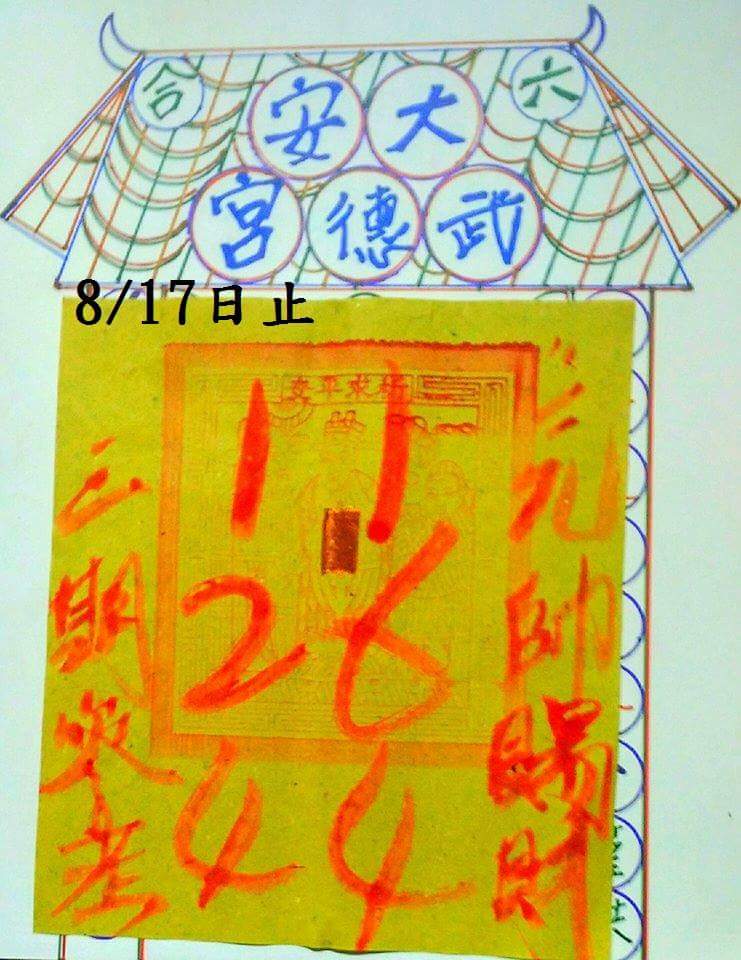 六合
大安
武德宮
8/17日止
祈求平安
元帥賜財
11
26
44
三期參考